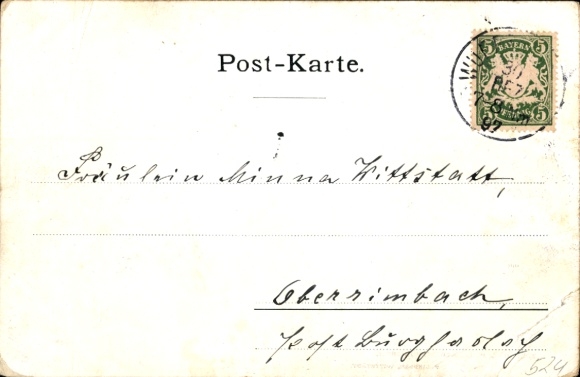 Post-Karte.
5 BAYERN 5
30
DEZ
7-8
97
Fräulein Minna Wittstatt,
Oberrimbach,
Post Burghaslach
524